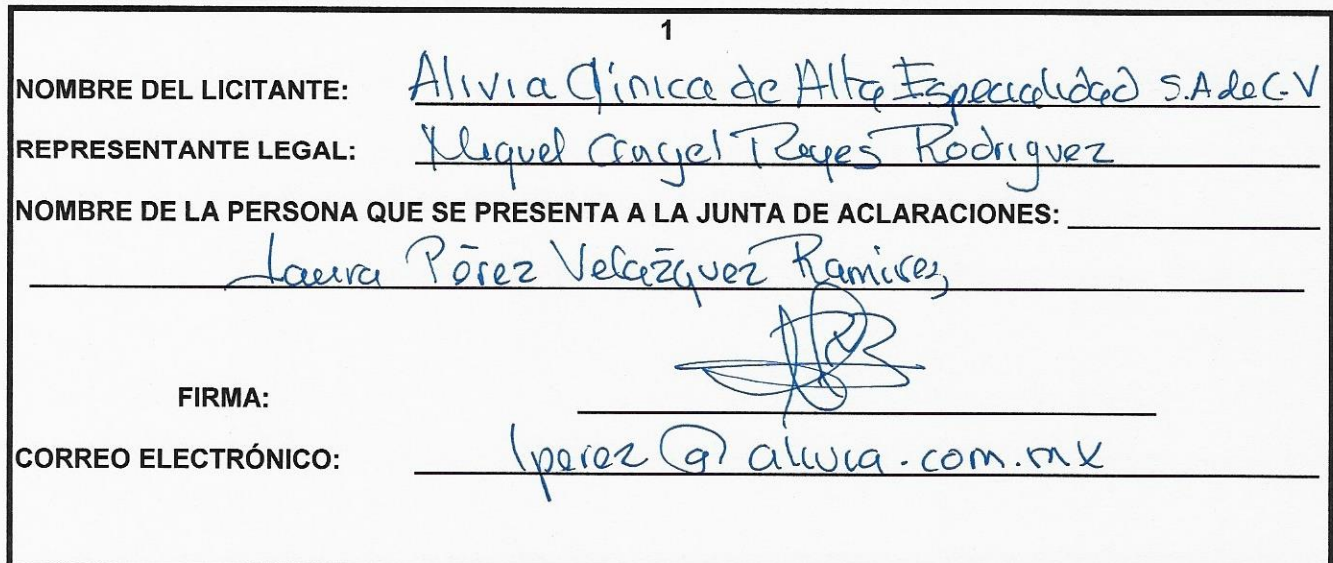 1
NOMBRE DEL LICITANTE: Alivia Clínica de Alta Especialidad S.A de C.V
REPRESENTANTE LEGAL: Miguel Angel Reyes Rodriguez
NOMBRE DE LA PERSONA QUE SE PRESENTA A LA JUNTA DE ACLARACIONES:
Laura Pérez Velázquez Ramirez
FIRMA:
CORREO ELECTRÓNICO: lperez@alivia.com.mx